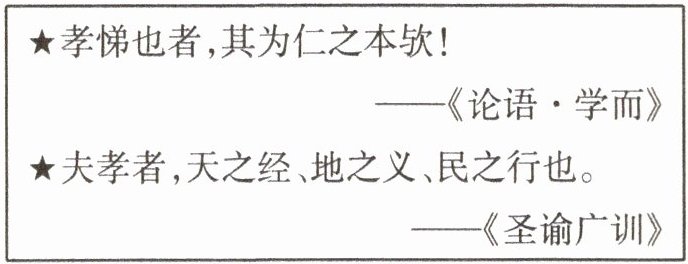 ★孝悌也者,其为仁之本欤!
——《论语·学而》
★夫孝者,天之经、地之义、民之行也。
——《圣谕广训》